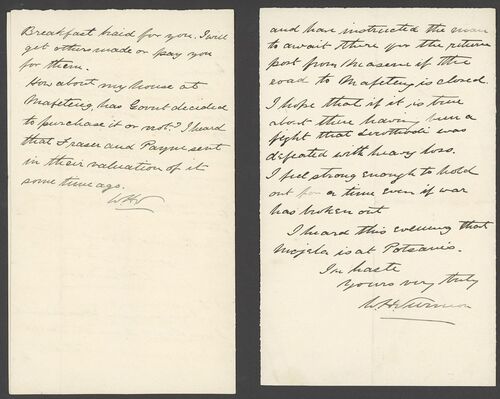 Breakfast braid for you. I will
get others made or pay you
for them.
How about my house at
Mafeteng, has Govnt decided
to purchase it or not? I heard
that Fraser and Payne sent
in their valuation of it
some time ago.
and have instructed the man
to await there for the return
post from Maseru if the
road to Mafeteng is closed.
I hope that if it is true
about there having been a
fight that Lerothodi was
defeated with heavy loss.
I feel strong enough to hold
out for a time even if war
has broken out
I heard this evening that
Mojela is at Potsanis.
In haste
Yours very truly